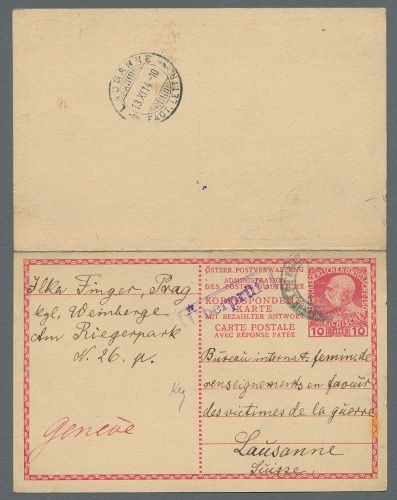 LAUSANNE
13.XI.14-10
FACT. LETTR.
ÖSTERR. POSTVERWALTUNG
ADMINISTRATION
DES POSTES D'AUTRICHE
KORRESPONDENZ-
KARTE
MIT BEZAHLTER ANTWORT
CARTE POSTALE
AVEC RÉPONSE PAYÉE
Überprüft
10 10
Ilka Finger, Prag
kgl. Weinberge
Am Riegerpark
N. 26. p.
Genève
Bureau internat. femin. de
renseignements en faveur
des victimes de la guerre
Lausanne
Suisse.